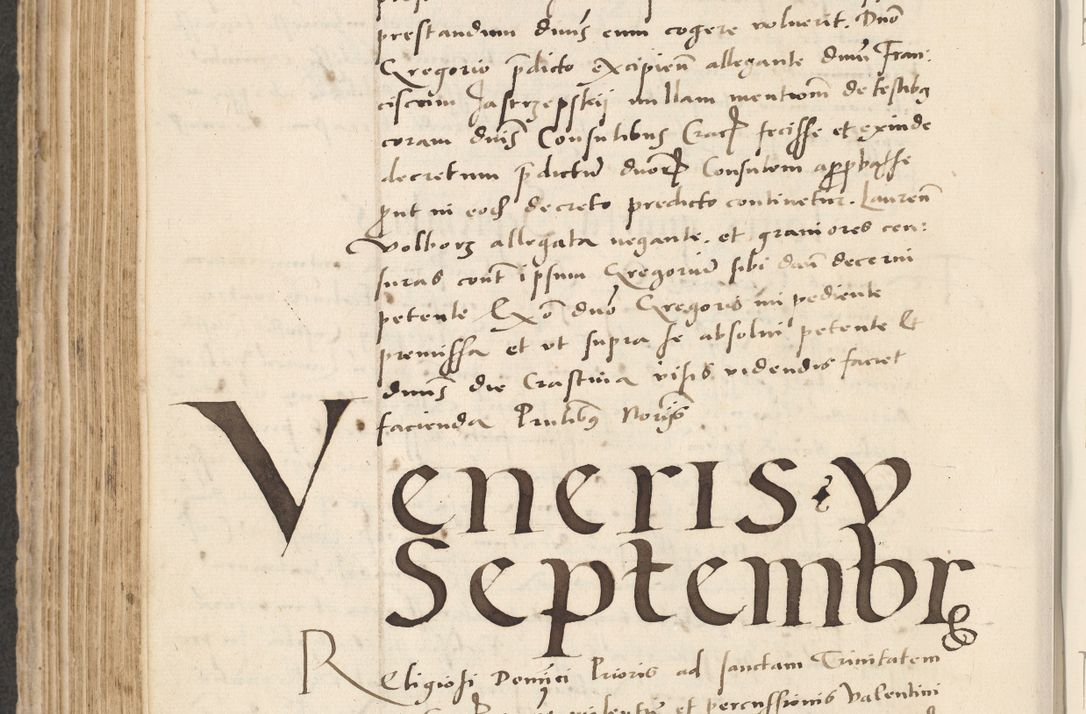 prestandum dnus eum cogere voluerit. Dno
Gregorio pdicto Excipien allegante dnum Fran:
ciscum Jastrzepskij nullam mentionem de testibq
coram dnis Consulibus Crac fecisse et exinde
decretum pdictum dnor Consulum approbasse
put in eod decreto predicto continetur. Lauren
Wolborz allegata negante. et graniores cen:
suras cont ipsum Gregorium sibi dari decerni
petente Ex dno Gregorio impediente
premissa et ut supra se absolui petente Et
dnus die Crastina visis videndis faciet
facienda Pntibq Norijs
Veneris v
Septembr
Religiosi Dominici Prioris ad sanctam Trinitatem
et percussionis Valentini